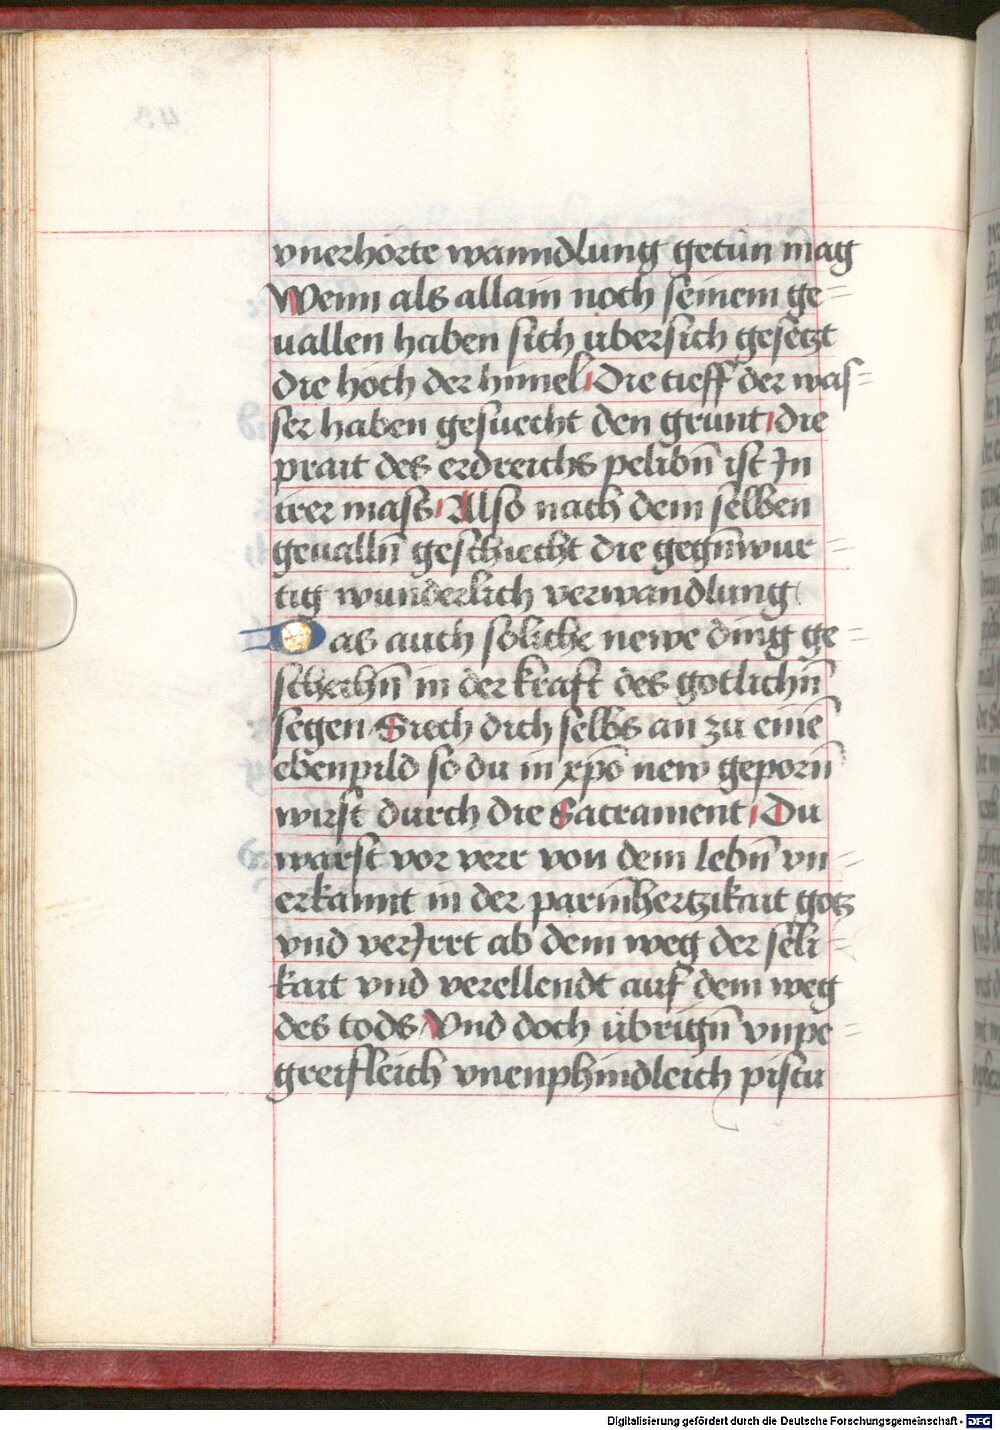 vnerhörte wanndlung getůn mag
Wenn als allain noch seinem ge=
uallen haben sich übersich gesetzt
die höch der himel / Die tieff der was=
ser haben gesuecht den grunt / die
prait des erdreichs pelibn̄ ist Jn
irer mass / Also nach dem selben
geualln̄ geschiecht die gegn̄wur=
tig wunderlich verwandlung
Das auch söliche newe ding ge=
schechn̄ in der kraft des gotlichn̄
segen / Siech dich selbs an zu einē
ebenpild so du in xp̄o new geporn̄
wirst durch die Sacrament / Du
warst vor verr von dem lebn̄ vn=
erkannt in der parmhertzikait gotz
vnd verJrrt ab dem weg der seli=
kait vnd verellendt auf dem weg
des tods / Vnd doch übrign̄ vnpe=
greifleich vnenphindleich pistu
Digitalisierung gefördert durch die Deutsche Forschungsgemeinschaft - DFG